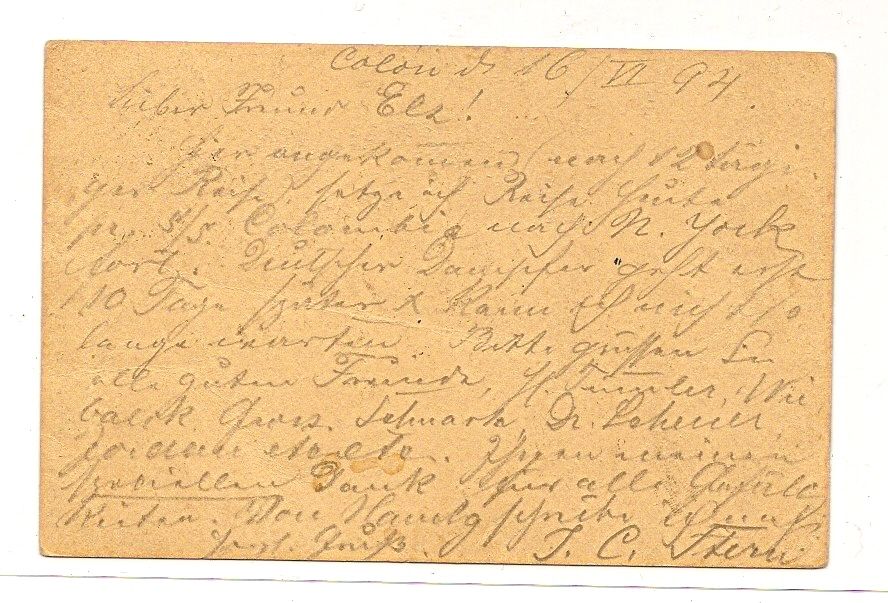 Colón d. 16/VI 94.
Lieber Freund Elz!
Hier angekommen (nach 12tägi-
ger Reise) setze ich Reise heute
pr. S/S. Colombia nach N. York
fort. Deutscher Dampfer geht erst
10 Tage später & kann ich nicht so
lange warten. Bitte grüssen Sie
alle guten Freunde, H.
Dr. Scheuer,
Jordan etc etc. Ihnen meinen
speciellen Dank für alle Gefällig-
keiten. Von Hambg schreibe ich
herzl. Gruß. J. C. Stern